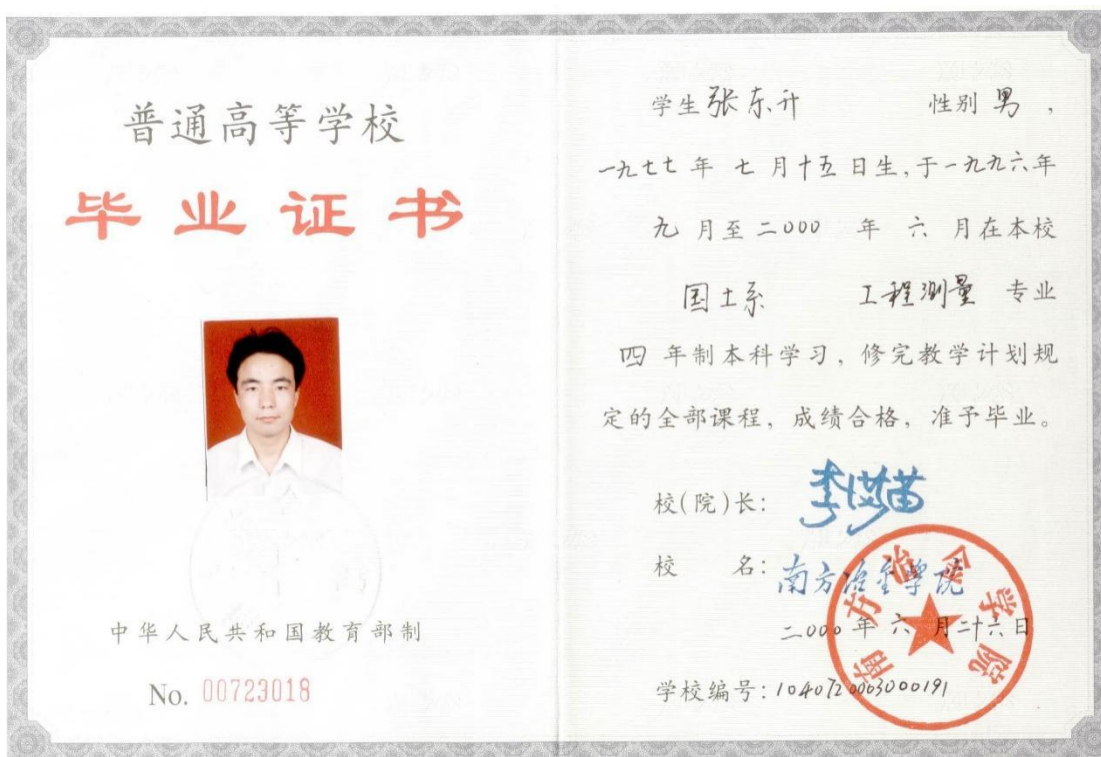 普通高等学校
毕业证书
中华人民共和国教育部制
No. 00723018
学生张东升 性别 男，
一九七七 年 七 月十五 日生，于一九九六年
九 月至 二000 年 六 月在本校
国土系 工程测量 专业
四 年制本科学习，修完教学计划规
定的全部课程，成绩合格，准予毕业。
校(院)长：
校 名：南方冶金学院
二000 年 六 月二十六日
学校编号：1040720003000191
南方冶金学院